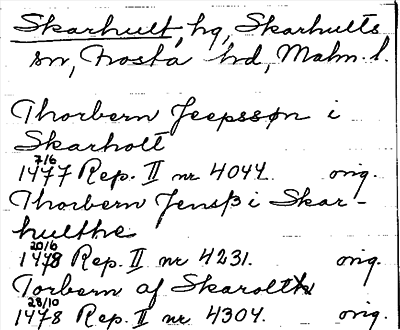 Skarhult, hg, Skarhults
sn, Frosta hd, Malm. l.
Thorbern Jeepssøn i
Skarholt
7/6
1477 Rep. II nr 4044. orig.
Thorbern Jensβ i Skar-
hulthe
20/6
1478 Rep. II nr 4231. orig.
Torbern af Skarolth
28/10
1478 Rep. II nr 4304. orig.